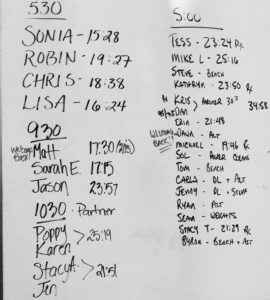 530
SONIA - 15:28
ROBIN - 19:27
CHRIS - 18:38
LISA - 16:24
930
Welcome Back! Matt 17:30
Sarah E. 17:15
Jason 23:57
1030 - Partner
Poppy
Karen > 25:19
Stacy A.
Jen > 21:51
5:00
TESS - 23:24 Rx
MIKE L - 25:16
STEVE - BEACH
KATHRYN - 23:50 Rx
KRIS 34:58
ERIN - 21:48
WELCOME BACK!! DAWN - ALT
MICHAEL - 19:46 Rx
SOL - POWER CLEANS
TOM - BEACH
CARLA - DL + ALT
JENNY - DL + STUFF
RYAN - ALT
SEAN - WEIGHTS
STACY T - 21:29 Rx
BYRON - BEACH + ALT